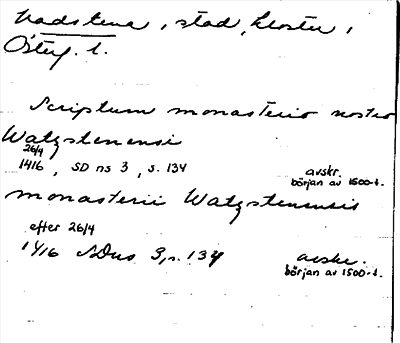 Vadstena, stad, kloster,
Österg. l.
Scriptum monasterio nostro
Watzstenensi
26/4
1416, SD ns 3, s. 134 avskr.
början av 1500-t.
monasterii Watzstenensis
efter 26/4
1416 SDns 3, s. 134 avskr.
början av 1500-t.